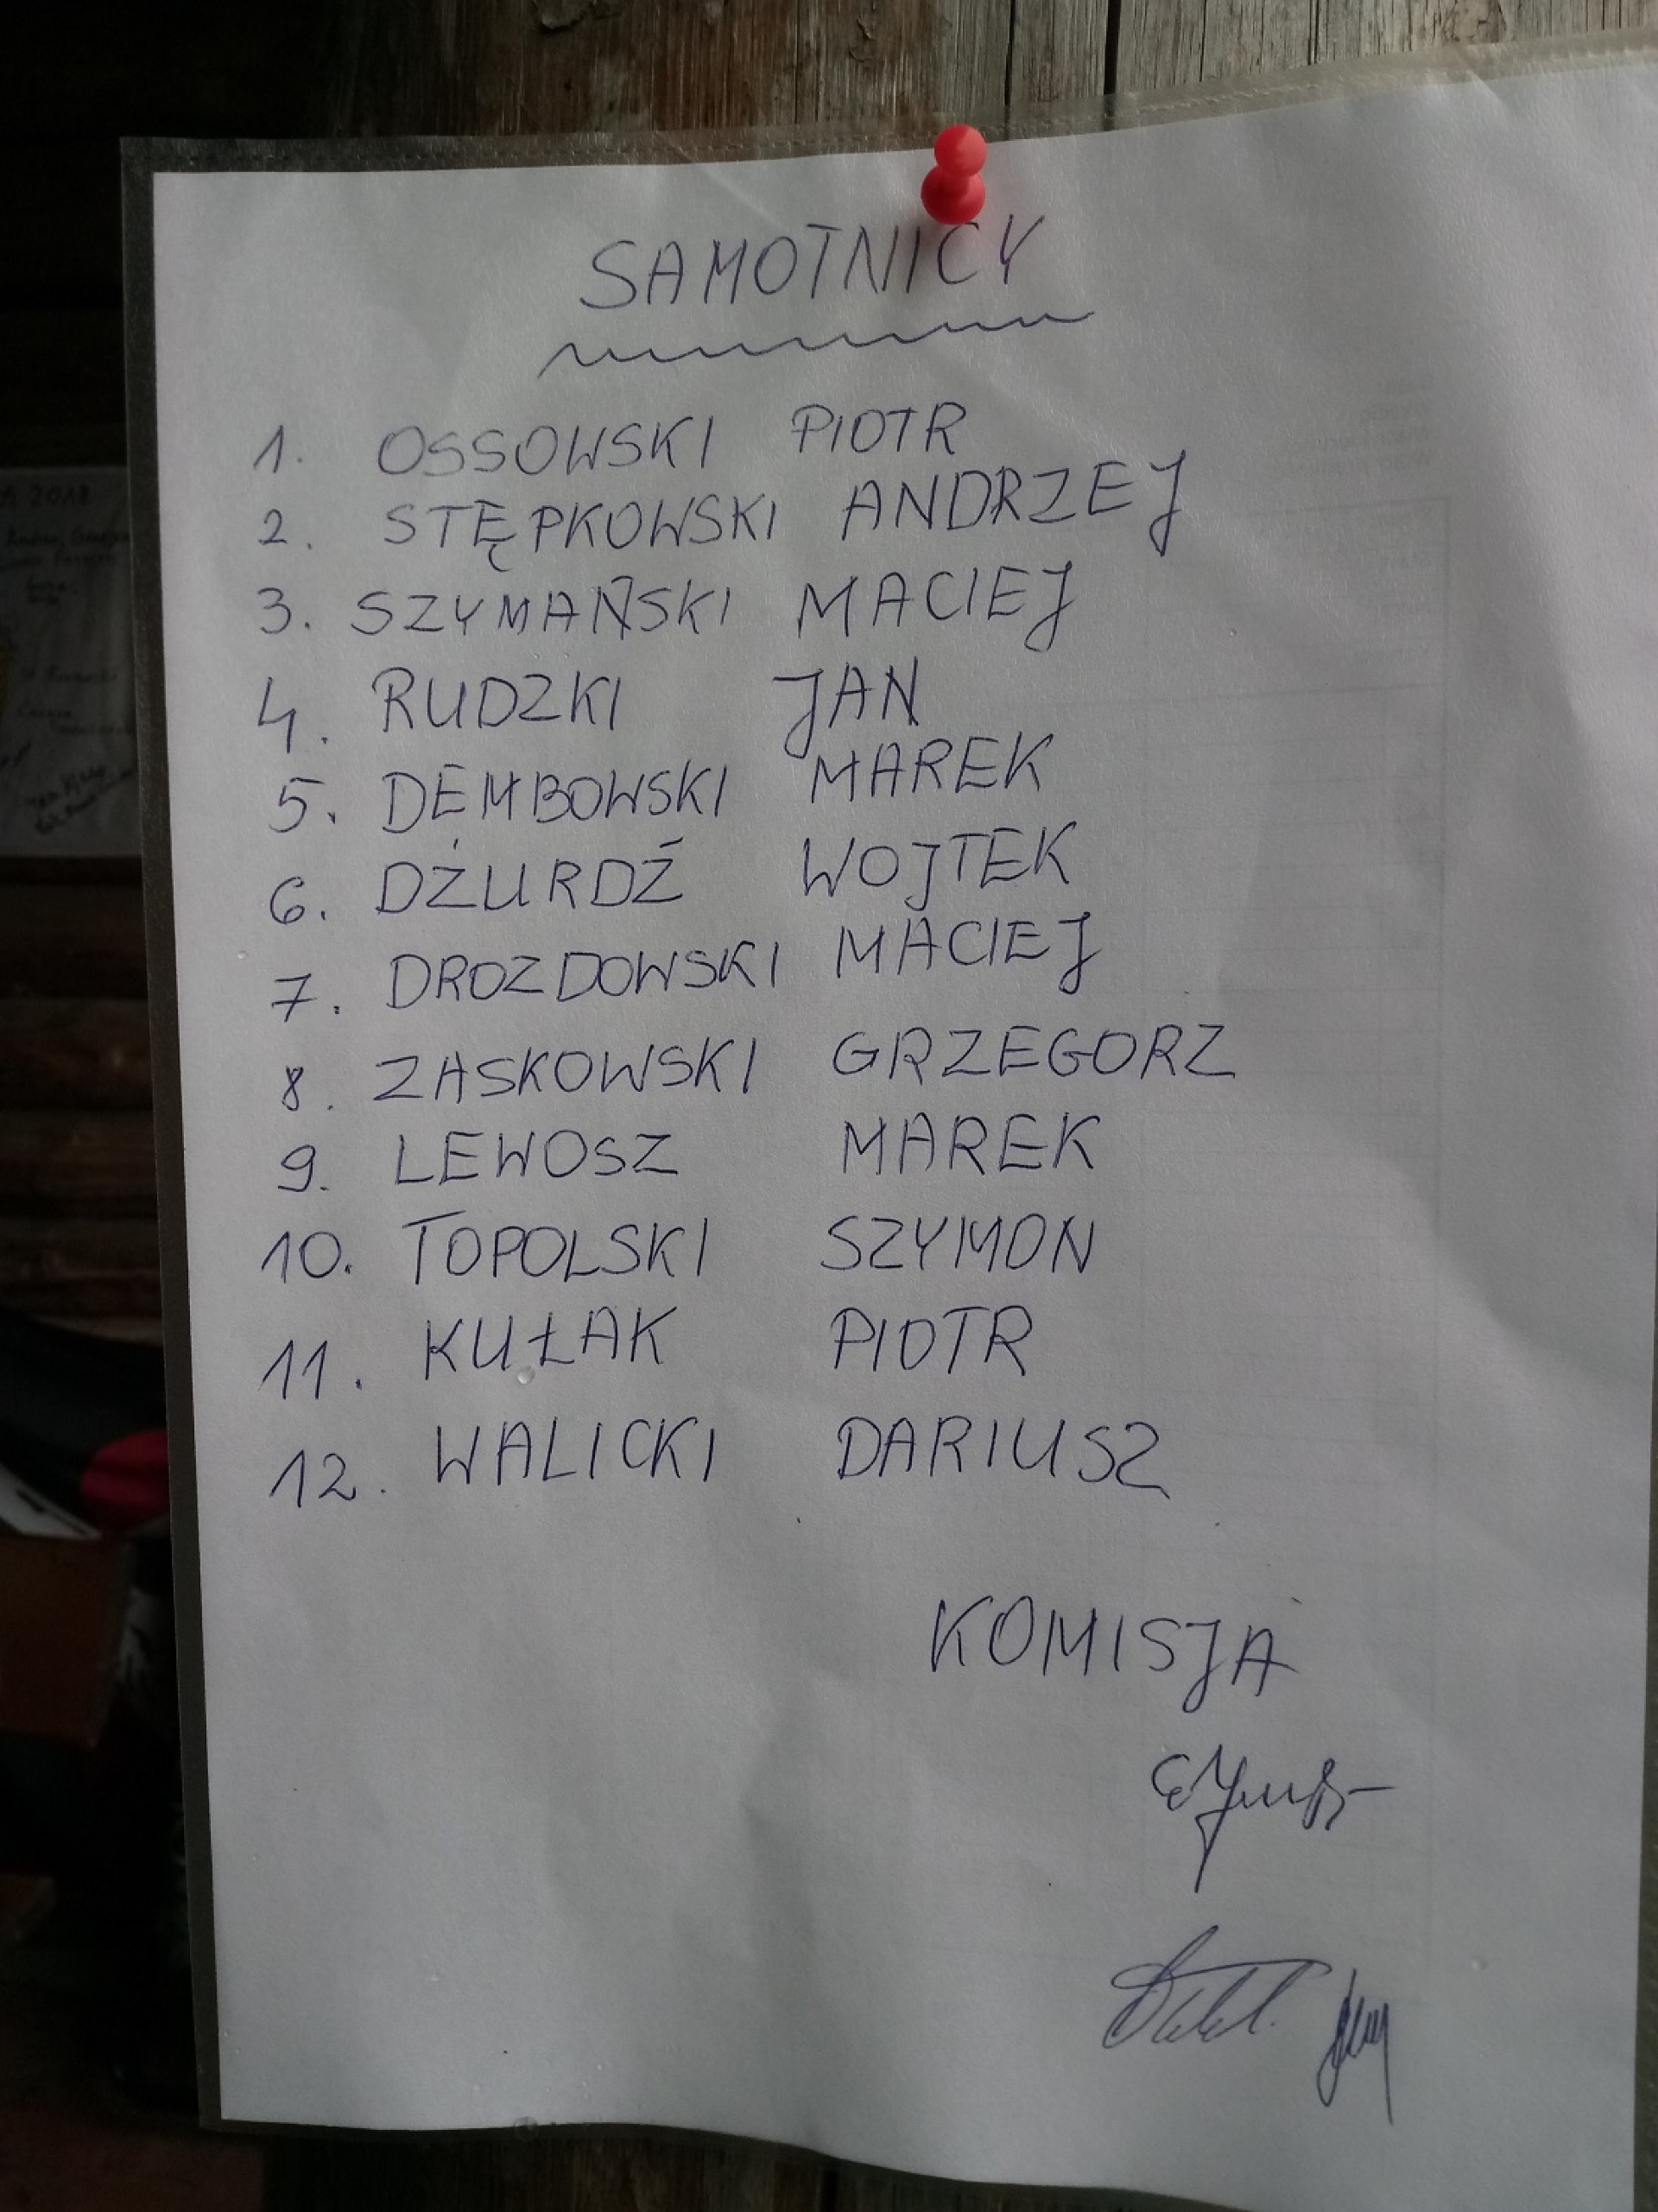 SAMOTNICY
1. OSSOWSKI PIOTR
2. STĘPKOWSKI ANDRZEJ
3. SZYMAŃSKI MACIEJ
4. RUDZKI JAN
5. DEMBOWSKI MAREK
6. DŻURDŹ WOJTEK
7. DROZDOWSKI MACIEJ
8. ZASKOWSKI GRZEGORZ
9. LEWOSZ MAREK
10. TOPOLSKI SZYMON
11. KUŁAK PIOTR
12. WALICKI DARIUSZ
KOMISJA
2018